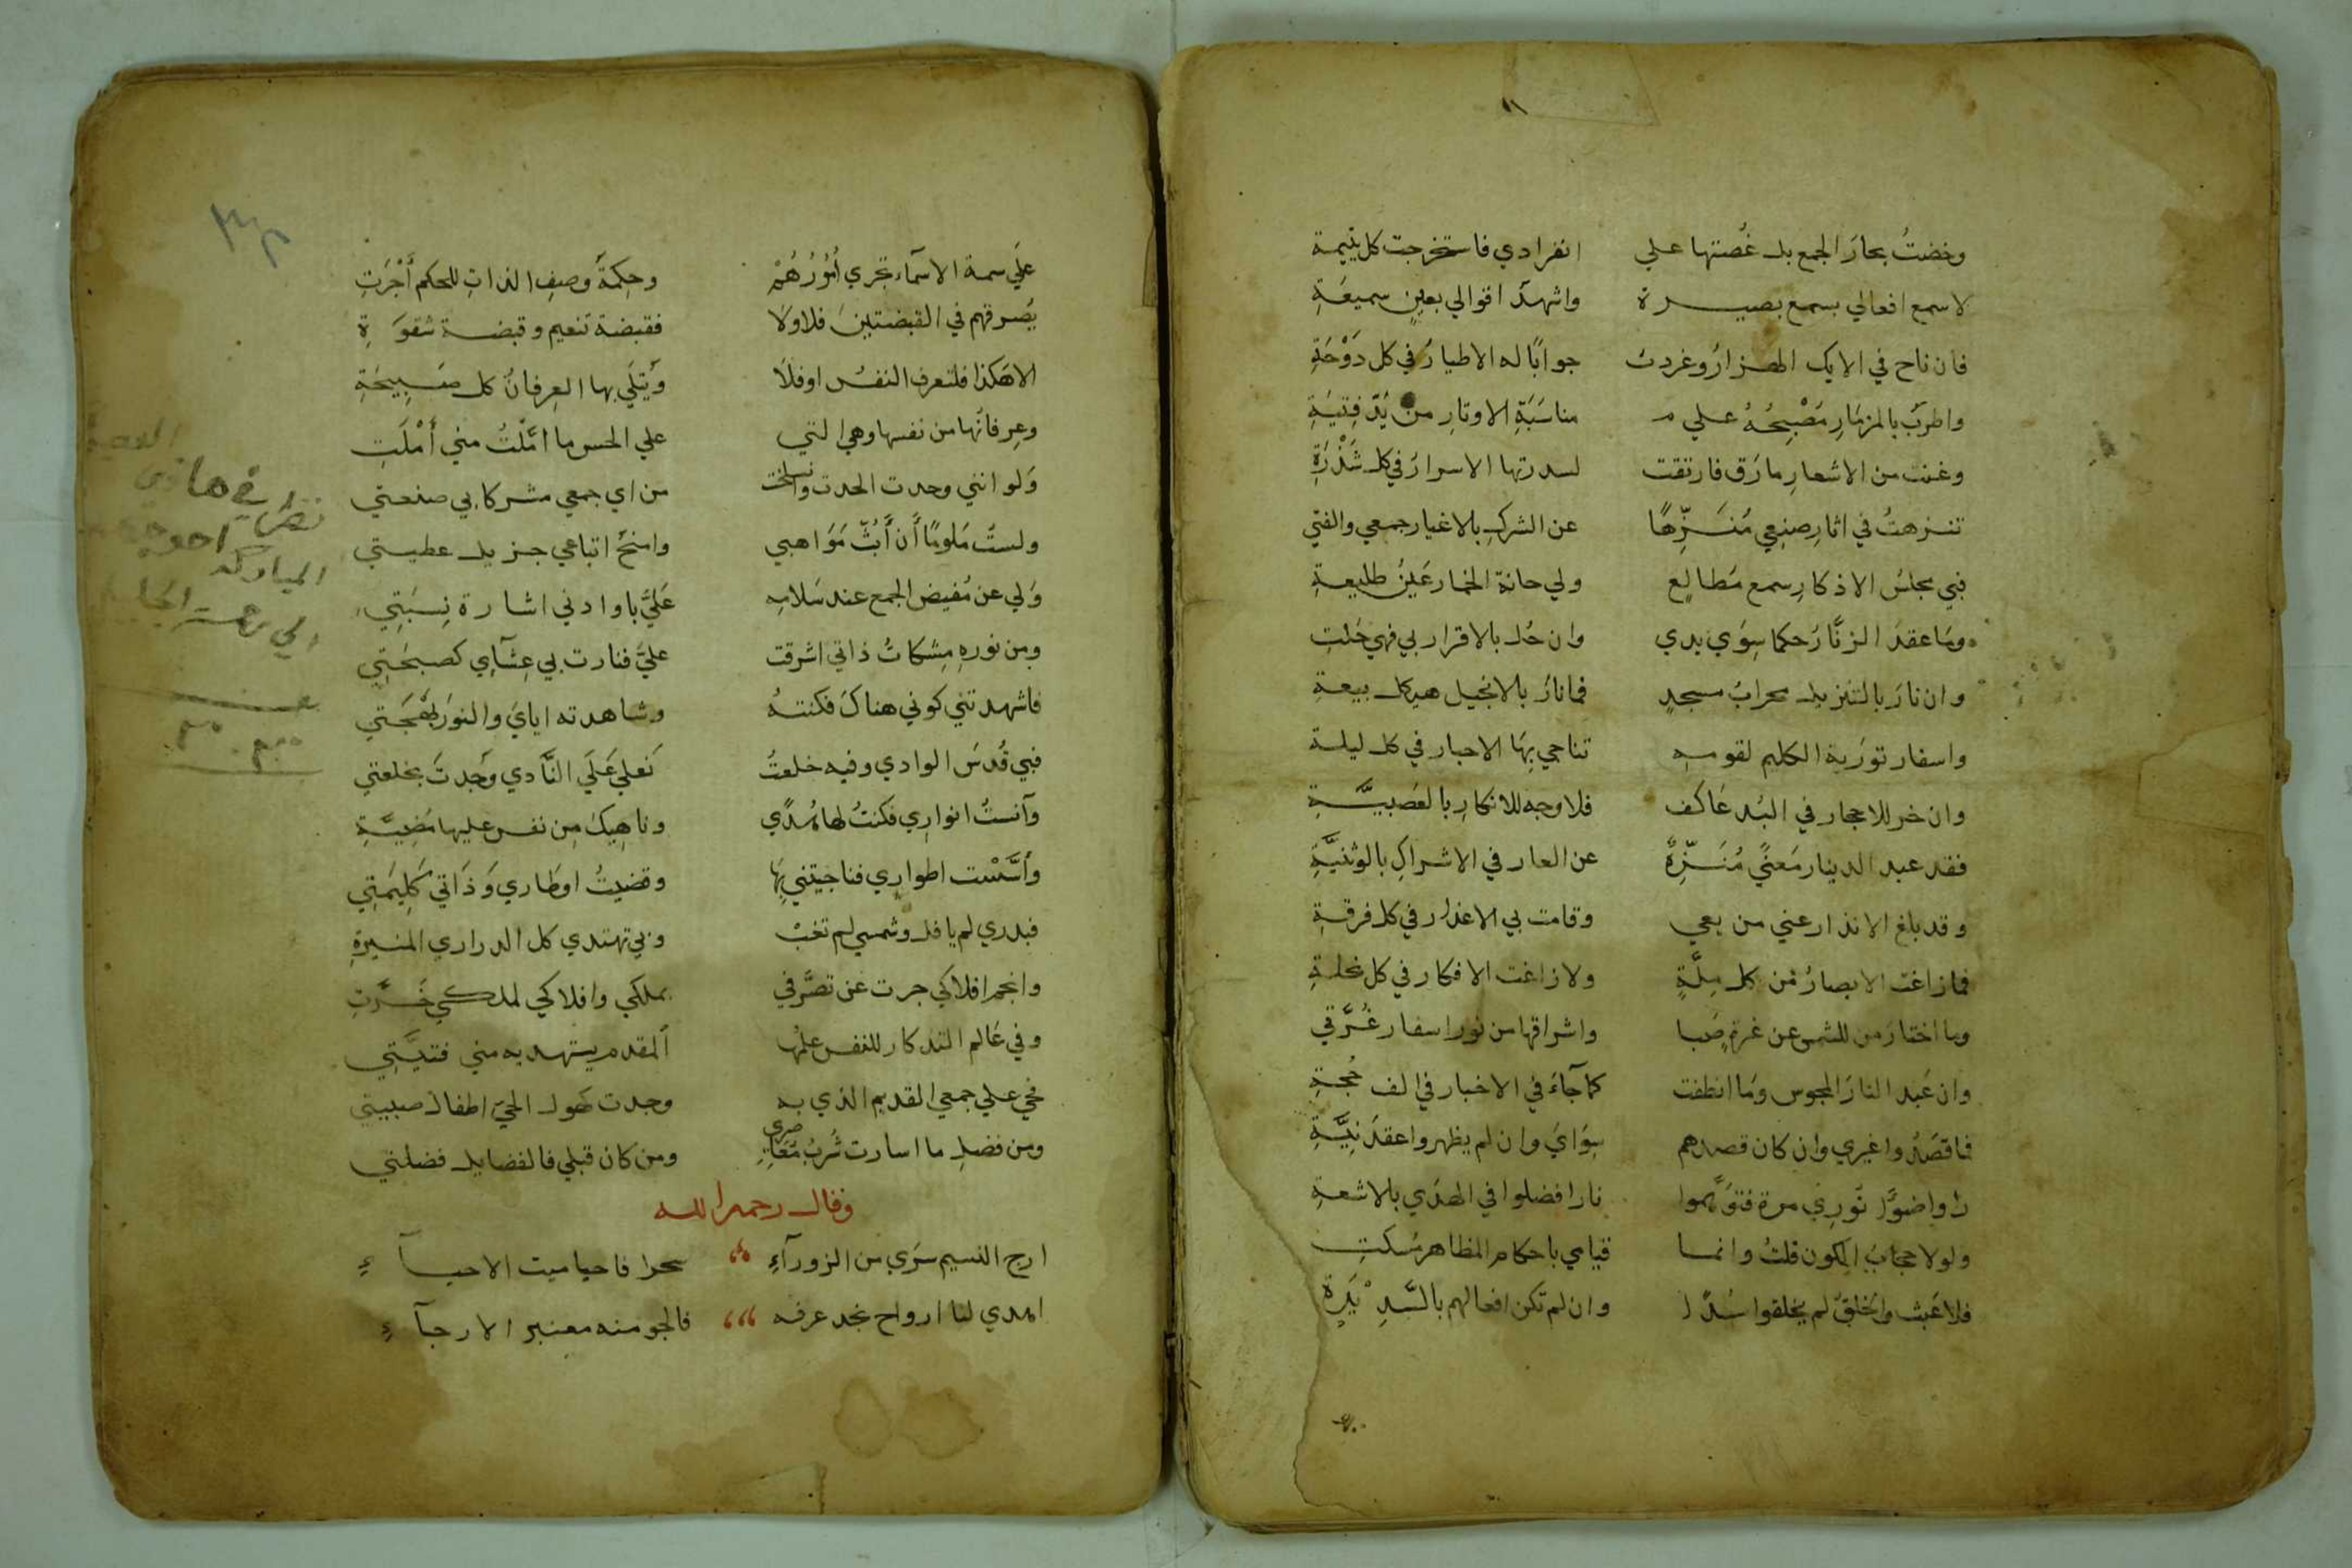 ١١
وخضتُ بحارَ الجمع بل غُصتها علي انفرادي فاستخرجت كل يتيمة
لاسمع افعالي بسمع بصيرة واشهدَ اقوالي بعينٍ سميعَةِ
فان ناح في الايك الهزارُ وغردت جوابًا له الاطيارُ في كل دَوْحَةِ
واطربَ بالمزمارِ مُصْبِحُهُ علي مناسَبَةِ الاوتارِ من يَدِ فِتيَةِ
وغنت من الاشعارِ مارَق فارتقت لسدرتها الاسرارُ في كل شَدْرَةِ
تنزهتُ في اثارِ صنعي مُنَزِّهًا عن الشركِ بالاغيار جمعي والفتي
فبي مجلسُ الاذكارِ سمع مَطالِع ولي حانة الخمار عَينُ طليعةِ
وما عقدَ الزنَّارَ حكما سِوَي يدي وان حُل بالاقرار بي فهي حَلتِ
وان نارَ بالتنزيل محرابُ مسجدٍ فما نارَ بالانجيل هيكل بيعة
واسفار توَرية الكليم لقومه تناجي بِهَا الاحبار في كل ليلة
وان خر للاحجار في البُد عَاكف فلا وجه للانكارِ بالعَصبيَّةِ
فقد عبد الدينار مَعنًي مُنَزَّهٌ عن العار في الاشراكِ بالوثنيَّةِ
وقد بلغ الانذار عني من بغي وقامت بي الاعذار في كل فرقةِ
فما زاغت الابصارُ من كل مِلَّةٍ ولا زاغت الافكار في كل نحلةِ
وما اختارَ من للشمس عن غرةٍ صَبا واشراقها من نور اسفار غُرَّتي
وان عَبد النارَ المجوس وَما انطفت كما جآءَ في الاخبار في الف حُجةِ
فما قصَدُوا غيري وان كان قصدهم سِوَايَ وان لم يظهروا عقدَ نِيَّةِ
راوا ضوَّا نورِي مرة فتوَهَّموا نارا فضلوا في الهدَي بالاشعةِ
ولولا حجابُ الكون قلتُ وانما قيامي باحكام المظاهر مُسكتِ
فلا عَبث والخلقُ لم يخلقوا سُدًا وان لم تكن افعالهم بالسَّدِيْدَةِ
علَي سمة الاسمآء تجري اُمُوُرُهُمْ وحِكمَةُ وصفِ الذاتِ للحكم أَجْرَتِ
يُصَرفهم في القبضتينَ فلا ولا فقبضة تنعيم وقبضة شقوَةِ
الا هَكذا فلتعرفِ النفسُ اوفلا وَيُتلَي بها العِرفانُ كل صَبِيحَةِ
وعِرفانُها من نفسها وهي التي علي الحس ما امَّلتُ مني أَمْلَتِ
وَلو انني وحدت الحدت وانسلخت من اي جمعي مشركا بي صنعتي
ولستُ مَلومًا أن أَبُثَّ مَوَاهبي وامنحُ اتباعي جزيل عطيتي
وَلي عن مُفيضِ الجمع عند سَلامِه عَليَّ باوادني اشارة نِسبَتِي
ومن نورهِ مِشكاتُ ذاتي اشرقت عليَّ فنارت بي عِشآي كصبحَتِي
فاشهدتني كوني هناكَ فكنتهُ وشاهدته ايايَ والنورَ بَهْجَتي
فبي قُدسَ الوادي وفيه خلعتُ نَعلي عَلَي النَّادي وَجدتُ بخلعتي
وآنستُ انوارِي فكنتُ لها هُدًي وناهِيكَ مِن نفس عليها مُضِيَّةِ
وأَسَّسْت اطواري فناجيتني بِهَا وقضيتُ اوطاري وَذَاتي كَلِيمَتِي
فبدري لم يافل وشمسي لم تغبْ وبي تهتدي كل الدراري المنيرةِ
وانجم افلاكي جرت عن تصَرُّفي بملكي وافلاكي لملكي خَرَّتِ
وفي عَالم التذكار للنفس علمُها المقدم يستهديه مني فتيَّتِي
فحي علي جمعي القديم الذي به وجدت كهول الحيّ اطفال صبيتي
ومن فضلِ ما اسارت شُربُ مُعَاصِري ومن كان قبلي فالفضايل فضلتي
وقال رحمه الله
ارج النسيم سَرَي من الزورآءِ سحرا فاحيا ميت الاحيآءِ
اهدي لنا ارواح نجد عرفه فالجو منه معنبر الارجآءِ
نظر في هاذي
المباركه احوج
الي رحمة